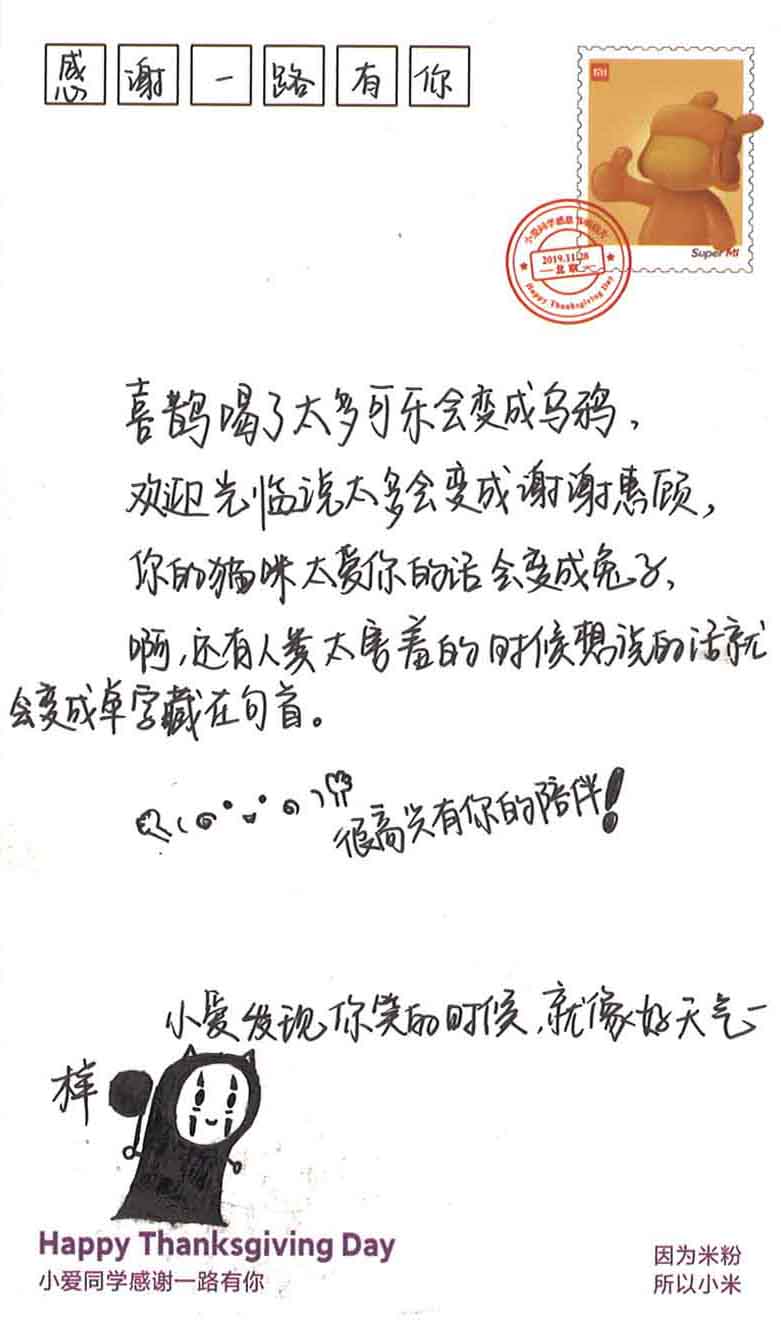 感谢一路有你
MI
Super MI
小爱同学感恩
2019.11.28
北京
Happy Thanksgiving Day
喜鹊喝了太多可乐会变成乌鸦，
欢迎光临说太多会变成谢谢惠顾，
你的猫咪太爱你的话会变成兔子，
啊，还有人类太害羞的时候想说的话就
会变成单字藏在句首。
很高兴有你的陪伴！
小爱发现你笑的时候，就像好天气一
样
Happy Thanksgiving Day
小爱同学感谢一路有你
因为米粉
所以小米